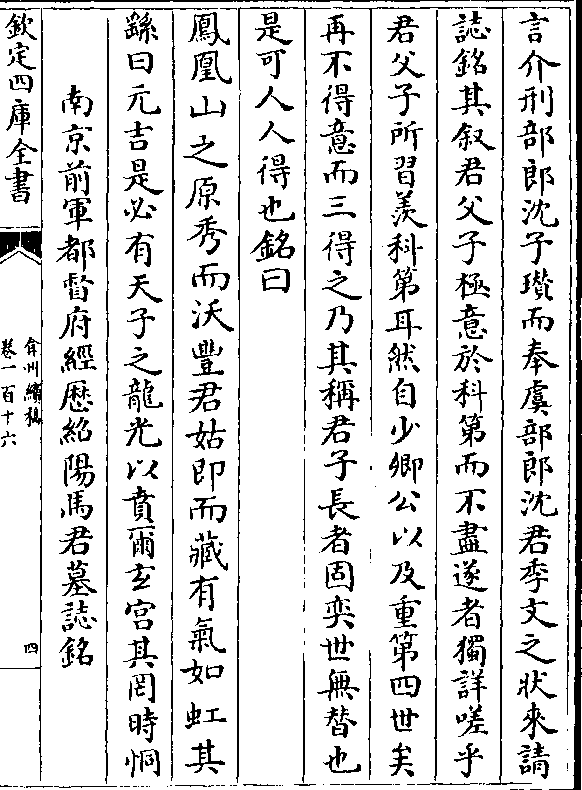 言介刑部郎沈子瓚而奉虞部郎沈君季文之狀來請
誌銘其叙君父子極意於科第而不盡遂者獨詳嗟乎
君父子所習羨科第耳然自少卿公以及重第四世矣
再不得意而三得之乃其稱君子長者固奕世無替也
是可人人得也銘曰
鳳凰山之原秀而沃豐君姑即而藏有氣如虹其
繇曰元吉是必有天子之龍光以賁爾玄宮其罔時恫
南京前軍都督府經歷紹陽馬君墓誌銘
欽定四庫全書
弇州續稿
卷一百十六
四